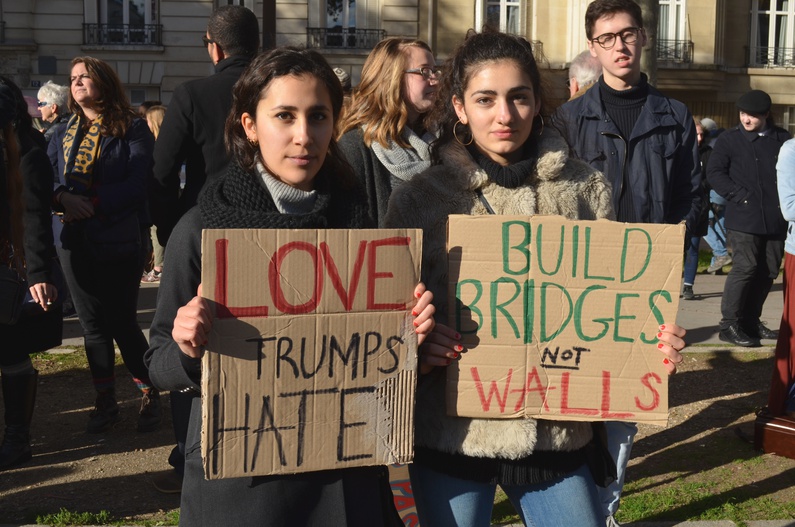 LOVE
TRUMPS
HATE
BUILD
BRIDGES
NOT
WALLS